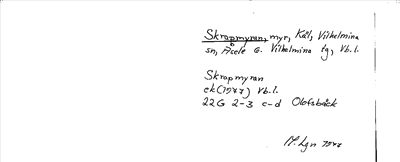 Skrapmyran, myr, Käl, Vilhelmina
sn, Åsele o. Vilhelmina tg, Vb.l.
Skrapmyran
ek (1977) Vb.l.
22G 2-3 c-d Olofsbäck
M. Lgn 1977